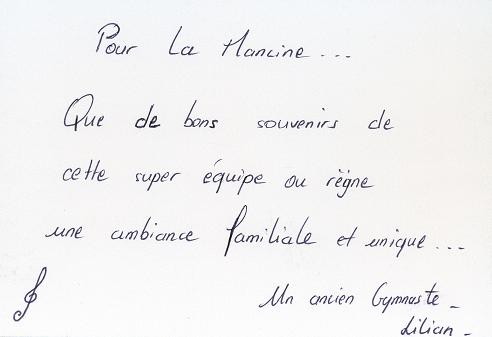 Pour La Mancine...
Que de bons souvenirs de
cette super équipe ou règne
une ambiance familiale et unique...
Un ancien Gymnaste_
Lilian_